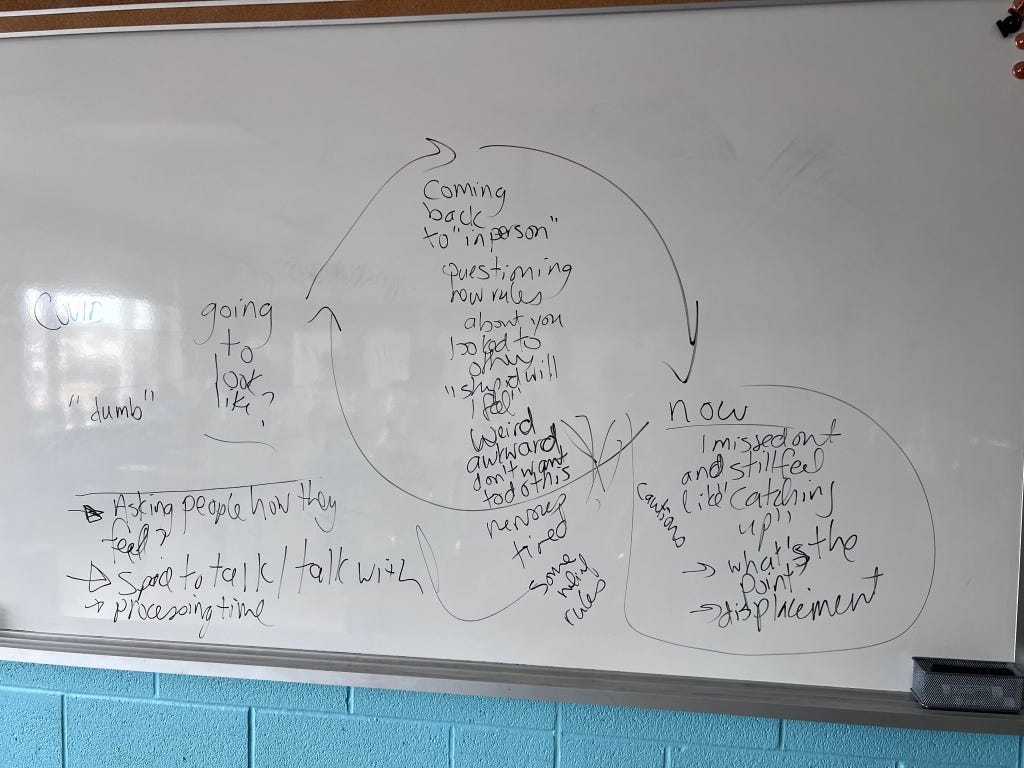 Coming
back
to "in person"
questioning
how rules
about you
looked to
other
"stupid will
I feel"
weird
awkward
don't want
to do this
nervous
tired
some
weird
rules
Could
going
to
look
like?
"dumb"
Asking people how they
feel?
Space to talk / talk with
→ processing time
now
I missed out
and still feel
like "catching
up"
cautious
→ what's the
point?
→ displacement